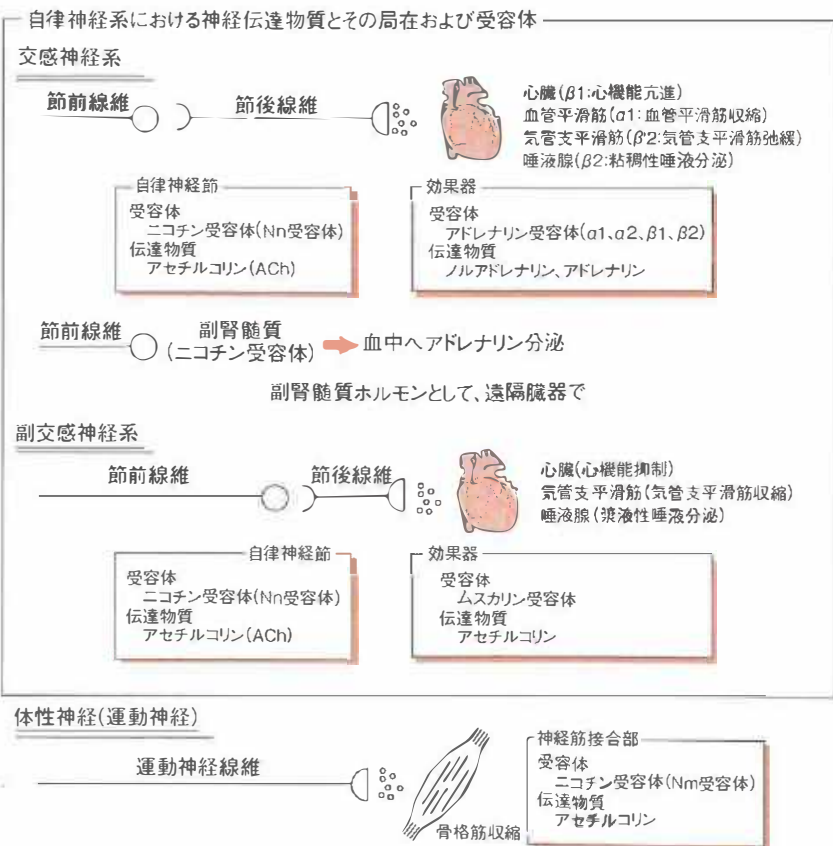 自律神経系における神経伝達物質とその局在および受容体
交感神経系
節前線維
節後線維
心臓(β1:心機能亢進)
血管平滑筋(α1:血管平滑筋収縮)
気管支平滑筋(β2:気管支平滑筋弛緩)
唾液腺(β2:粘稠性唾液分泌)
自律神経節
受容体
ニコチン受容体(Nn受容体)
伝達物質
アセチルコリン(ACh)
効果器
受容体
アドレナリン受容体(α1、α2、β1、β2)
伝達物質
ノルアドレナリン、アドレナリン
節前線維
副腎髄質
(ニコチン受容体)
血中へアドレナリン分泌
副腎髄質ホルモンとして、遠隔臓器で
副交感神経系
節前線維
節後線維
心臓(心機能抑制)
気管支平滑筋(気管支平滑筋収縮)
唾液腺(漿液性唾液分泌)
自律神経節
受容体
ニコチン受容体(Nn受容体)
伝達物質
アセチルコリン(ACh)
効果器
受容体
ムスカリン受容体
伝達物質
アセチルコリン
体性神経(運動神経)
運動神経線維
骨格筋収縮
神経筋接合部
受容体
ニコチン受容体(Nm受容体)
伝達物質
アセチルコリン